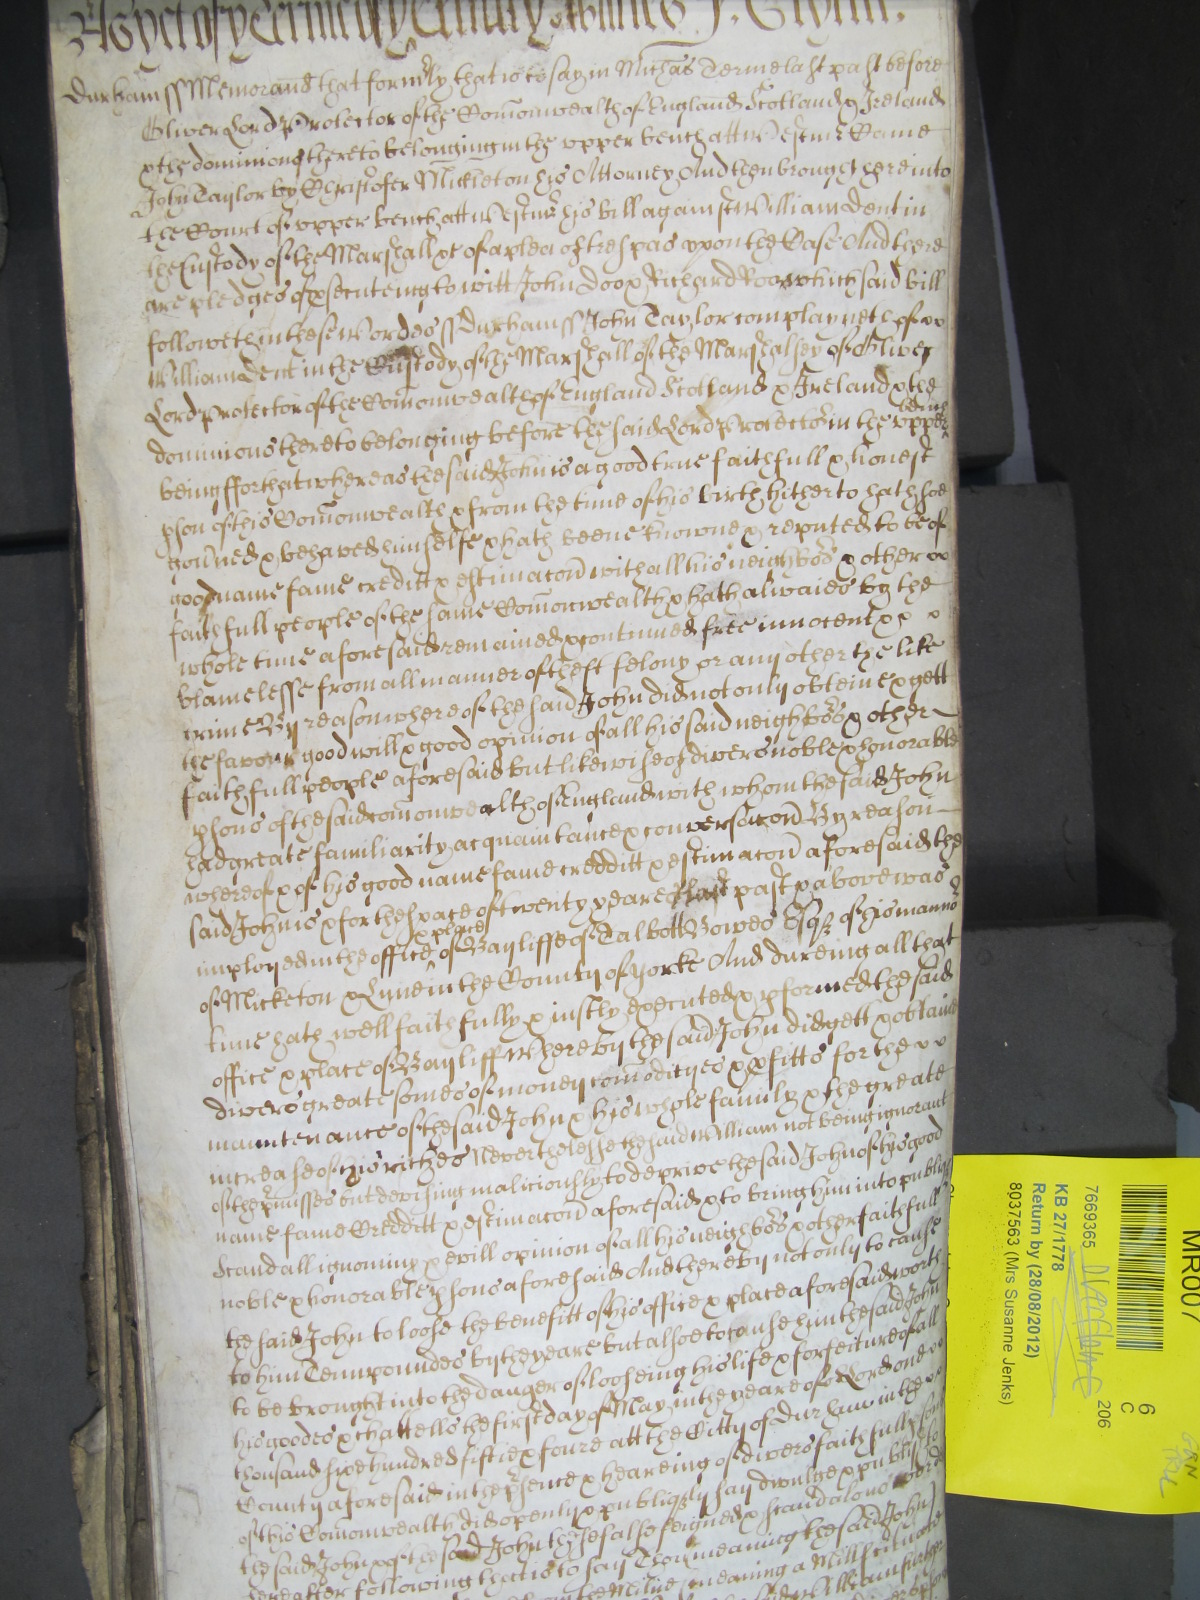 As yet of the Terme of the Trinity Witnes J. Glynn.
Durham ss Memorand that formrly that is to say in Michas Terme last past before
Oliver Lord Protector of the Comonwealth of England Scotland & Ireland
& the dominions thereto belonging in the upper bench att Westmr Came
John Taylor by Christofer Mickleton his Attorney And then brought here into
the Court of upper bench att Westmr his bill against William Dent in
the Custody of the Marshall &c of a plea of trespas upon the Case And there
are pledges of psecuteing to witt John Doo & Richard Roo which said bill
followeth in these Wordes ss Durham ss John Taylor complayneth of
William Dent in the Custody of the Marshall of the Marshalsey of Oliver
Lord Protector of the Comonwealth of England Scotland & Ireland & the
dominions thereto belonging before the said Lord Protector in the upper bench
being ffor that whereas the said John is a good true faithfull & honest
pson of this Comonwealth & from the time of his birth hitherto hath soe
govned & behaved himselfe & hath beene knowne & reputed to be of
good name fame creditt & estimacon with all his neighbors & other
faithfull people of the same Comonwealth & hath alwaies by the
whole time aforesaid remained & continued free innocent &
blamelesse from all manner of theft felony or any other the like
crime By reason whereof the said John did not only obteine & gett
the favour good will & good opinion of all his said neighbors & other
faithfull people aforesaid but likewise of divers noble & honorable
psons of the said comonwealth of England with whom the said John
had greate familiarity acquaintance & conversacon By reason
whereof & of his good name fame credditt & estimacon aforesaid the
said John is & for the space of twenty yeares last past & above was
imployed in the office & place of Bayliffe of Talbott Bowes Esqr of his mannor
of Micketon & Lune in the County of Yorke And dureing all that
time hath well faithfully & justly executed & pformed the said
office & place of Bayliff Whereby the said John did gett & obtaine
divers greate somes of money comodityes & pfitts for the
maintenance of the said John & his whole family & the greate
increase of his riches Neverthelesse the said William not being ignorant
of the pmisses but devising maliciously to deprive the said John of his good
name fame Credditt & estimacon aforesaid & to bring him into publiq
Scandall ignominy & evill opinion of all his neighbors & other faithfull
noble & honorable psons aforesaid And thereby not only to cause
the said John to loose the benefitt of his office & place aforesaid worth
to him Tenn poundes by the yeare but alsoe to cause him the said John
to be brought into the danger of looseing his life & forfeiture of all
his goodes & chattells the first day of May in the yeare of or Lord one
thousand six hundred fiftie & foure att the Citty of Durham in the
County aforesaid in the psence & heareing of divers faithfull people
of this Comonwealth did openly & publiqly say divulge & publish to
the said John & of the said John these false feigned & scandalous words
hereafter following that is to say Thou (meaning the said John)
the Milne (meaning a Mill scituate
William further
MR007
6
C
206
7669365
KB 27/1778
Return by (28/08/2012)
8037563 (Mrs Susanne Jenks)